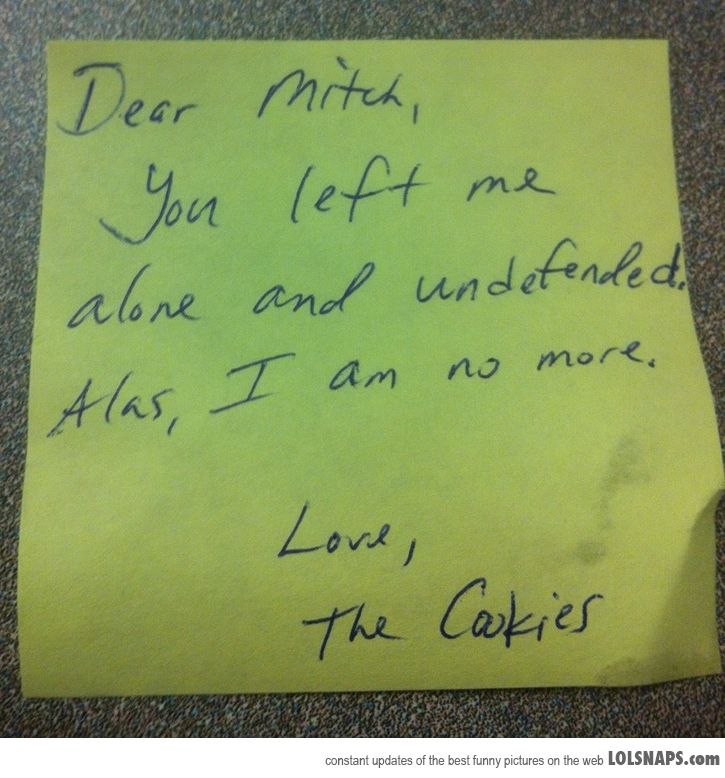 Dear Mitch,
You left me
alone and undefended.
Alas, I am no more.
Love,
The Cookies
constant updates of the best funny pictures on the web LOLSNAPS.com